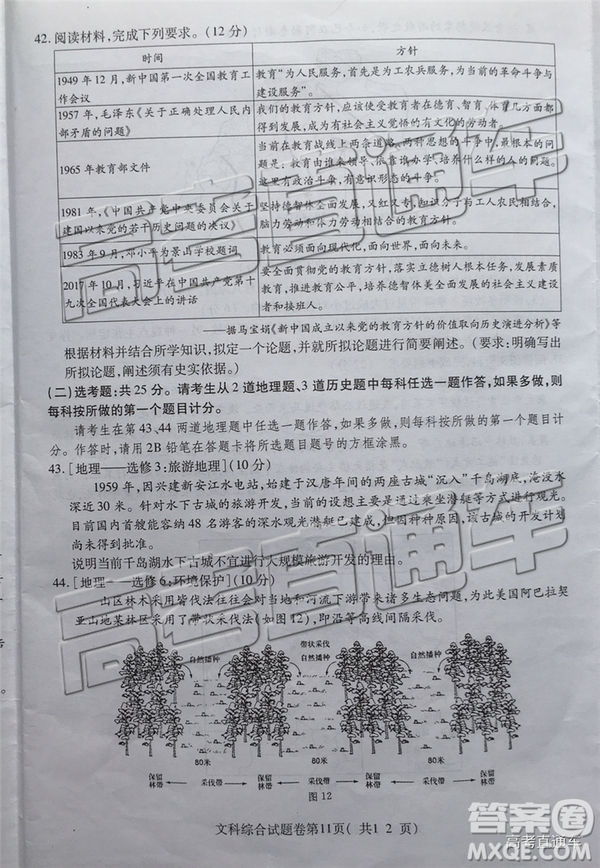 42. 阅读材料,完成下列要求。(12 分)
时间 方针
1949 年 12 月,新中国第一次全国教育工作会议
教育“为人民服务,首先是为工农兵服务,为当前的革命斗争与建设服务”。
1957 年,毛泽东《关于正确处理人民内部矛盾的问题》
我们的教育方针,应该使受教育者在德育、智育、体育几方面都得到发展,成为有社会主义觉悟的有文化的劳动者。
1965 年教育部文件
当前在教育战线上两条道路、两种思想的斗争中,最根本的问题是:教育由谁来领导、依靠谁办学、培养什么样的人的问题。这里有政治斗争,有意识形态的斗争。
1981 年,《中国共产党中央委员会关于建国以来党的若干历史问题的决议》
坚持德智体全面发展、又红又专、知识分子与工人农民相结合,脑力劳动和体力劳动相结合的教育方针。
1983 年 9 月,邓小平为景山学校题词
教育必须面向现代化,面向世界,面向未来。
2017 年 10 月,习近平在中国共产党第十九次全国代表大会上的讲话
要全面贯彻党的教育方针,落实立德树人根本任务,发展素质教育,推进教育公平,培养德智体美全面发展的社会主义建设者和接班人。
——据马宝娟《新中国成立以来党的教育方针的价值取向历史演进分析》等
根据材料并结合所学知识,拟定一个论题,并就所拟论题进行简要阐述。(要求:明确写出所拟论题,阐述须有史实依据。)
(二)选考题:共 25 分。请考生从 2 道地理题、3 道历史题中每科任选一题作答,如果多做,则每科按所做的第一个题目计分。
请考生在第 43、44 两道地理题中任选一题作答,如果多做,则每科按所做的第一个题目计分。作答时,请用 2B 铅笔在答题卡将所选题目题号的方框涂黑。
43. [地理——选修 3:旅游地理](10 分)
1959 年,因兴建新安江水电站,始建于汉唐年间的两座古城“沉入”千岛湖底,淹没水深近 30 米。针对水下古城的旅游开发,有人提出通过乘坐潜艇等方式进行观光。目前国内首艘能容纳 48 名游客的深水观光潜艇已建成,停泊在千岛湖,但该古城的开发计划尚未得到批准。
说明当前千岛湖水下古城不宜进行大规模旅游开发的理由。
44. [地理——选修 6:环境保护](10 分)
山区林木采用皆伐法往往会给当地和河流下游带来诸多生态问题,为此美国阿巴拉契亚山地某林区采用了带状采伐法(如图 12),即沿等高线间隔采伐。
带状采伐
自然播种 自然播种 自然播种 自然播种
80米 80米
保留林带 采伐带 保留林带 采伐带 保留林带 采伐带 保留林带
图 12
文科综合试题卷第11页( 共1 2 页)
高考直通车
答案圈
高考直通车